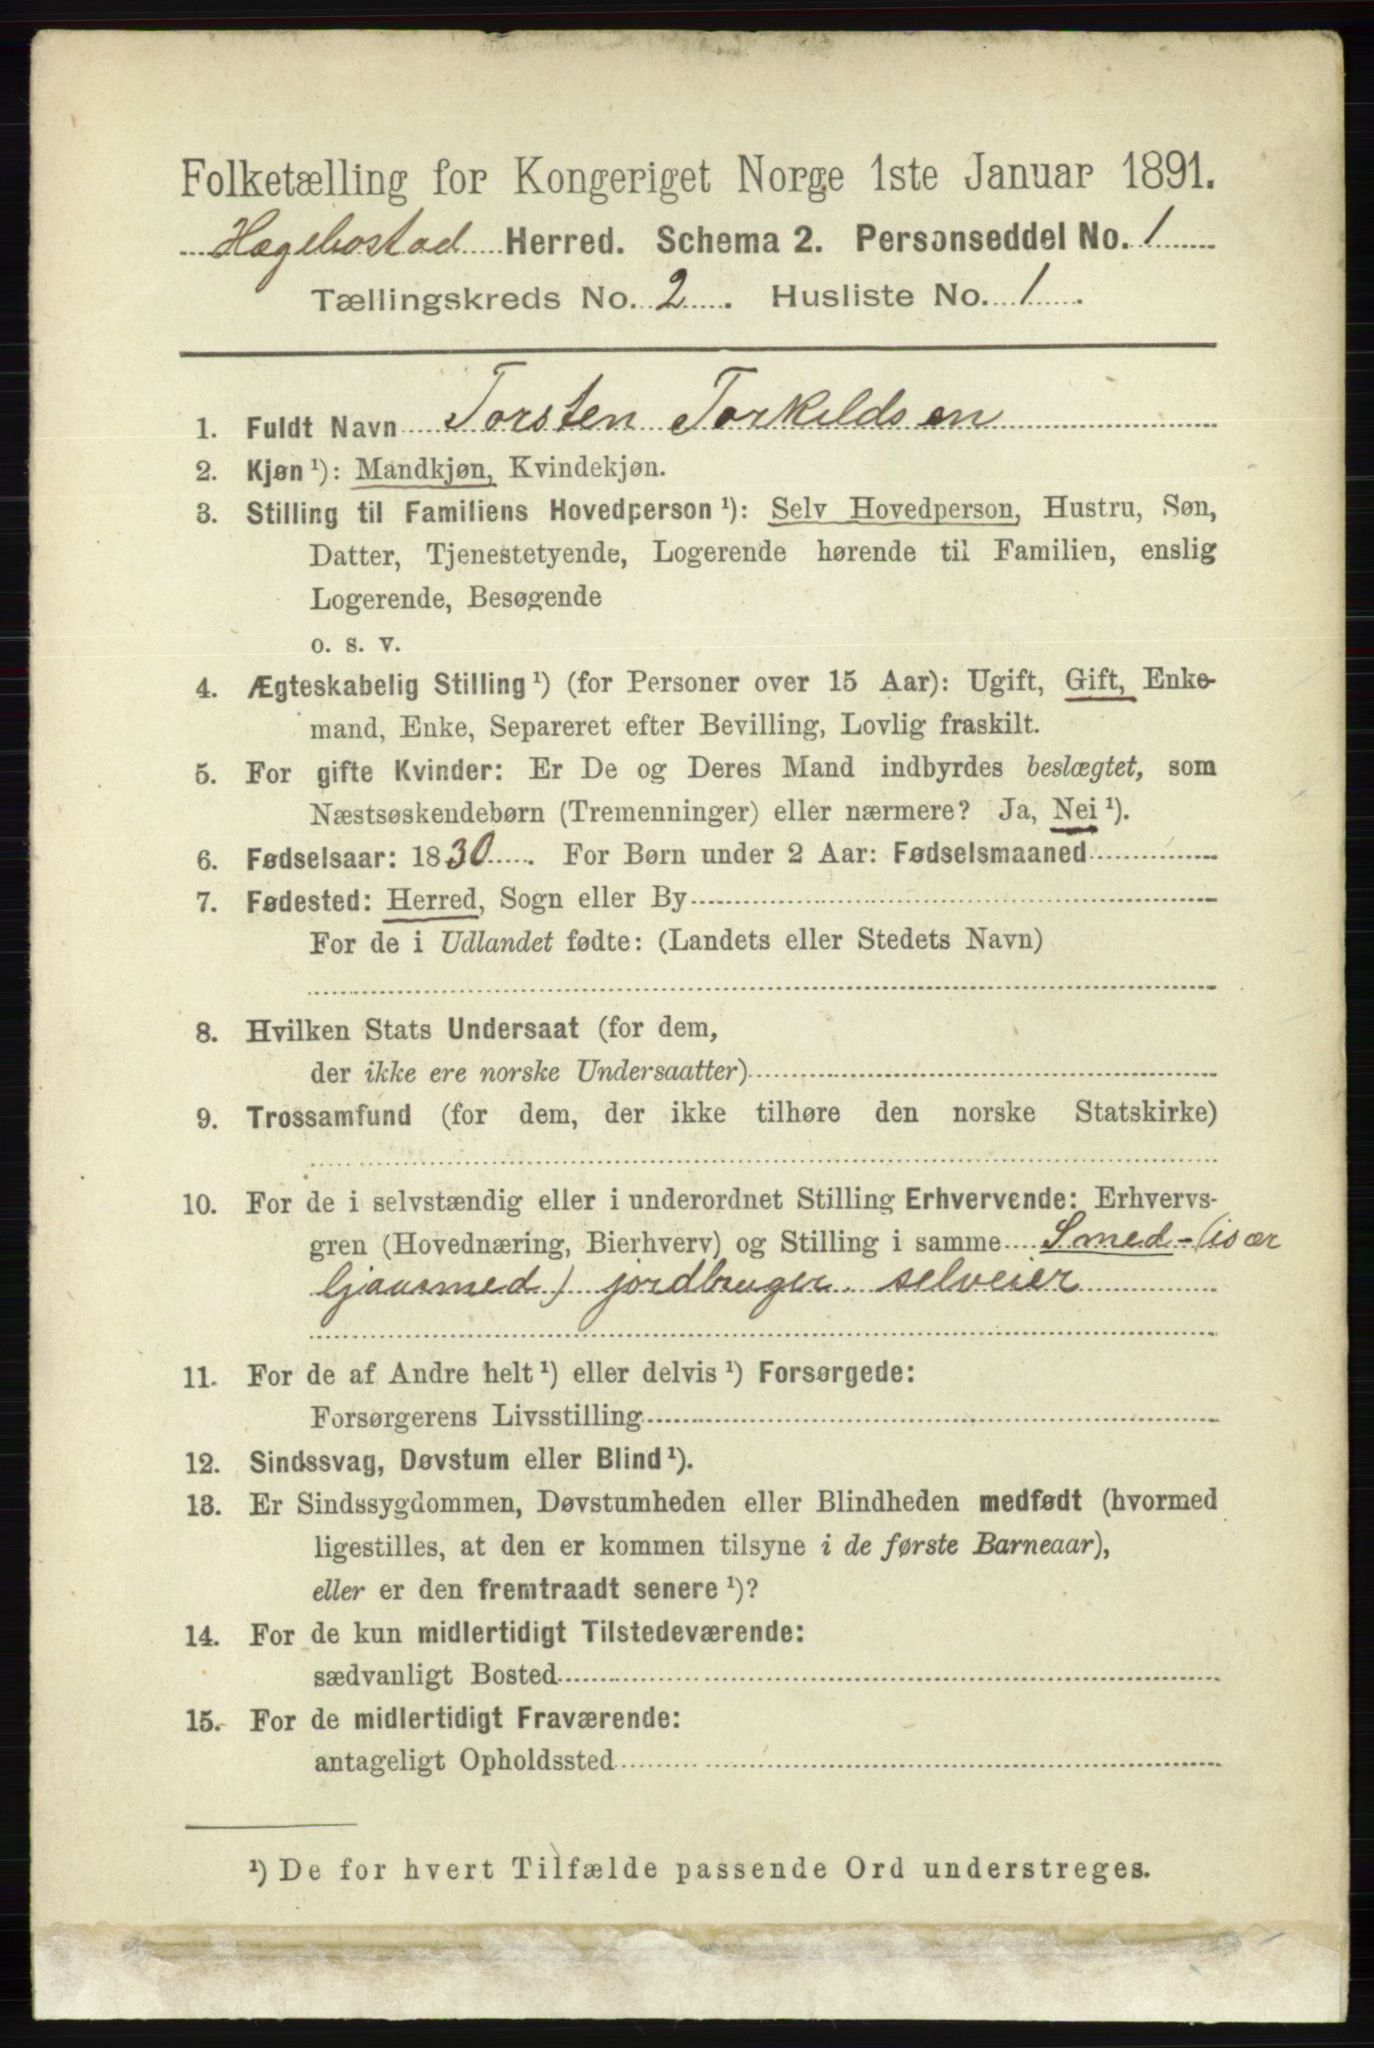 Folketælling for Kongeriget Norge 1ste Januar 1891.
Hægebostad Herred. Schema 2. Personseddel No. 1
Tællingskreds No. 2. Husliste No. 1.
1. Fuldt Navn Torsten Torkildsen
2. Kjøn ¹): Mandkjøn, Kvindekjøn.
3. Stilling til Familiens Hovedperson ¹): Selv Hovedperson, Hustru, Søn,
Datter, Tjenestetyende, Logerende hørende til Familien, enslig
Logerende, Besøgende
o. s. v.
4. Ægteskabelig Stilling ¹) (for Personer over 15 Aar): Ugift, Gift, Enke-
mand, Enke, Separeret efter Bevilling, Lovlig fraskilt.
5. For gifte Kvinder: Er De og Deres Mand indbyrdes beslægtet, som
Næstsøskendebørn (Tremenninger) eller nærmere? Ja, Nei ¹).
6. Fødselsaar: 1830. For Børn under 2 Aar: Fødselsmaaned
7. Fødested: Herred, Sogn eller By
For de i Udlandet fødte: (Landets eller Stedets Navn)
8. Hvilken Stats Undersaat (for dem,
der ikke ere norske Undersaatter)
9. Trossamfund (for dem, der ikke tilhøre den norske Statskirke)
10. For de i selvstændig eller i underordnet Stilling Erhvervende: Erhvervs-
gren (Hovednæring, Bierhverv) og Stilling i samme Smed - (især
ljaasmed) jordbruger selveier
11. For de af Andre helt ¹) eller delvis ¹) Forsørgede:
Forsørgerens Livsstilling
12. Sindssvag, Døvstum eller Blind ¹).
13. Er Sindssygdommen, Døvstumheden eller Blindheden medfødt (hvormed
ligestilles, at den er kommen tilsyne i de første Barneaar),
eller er den fremtraadt senere ¹)?
14. For de kun midlertidigt Tilstedeværende:
sædvanligt Bosted
15. For de midlertidigt Fraværende:
antageligt Opholdssted
¹) De for hvert Tilfælde passende Ord understreges.